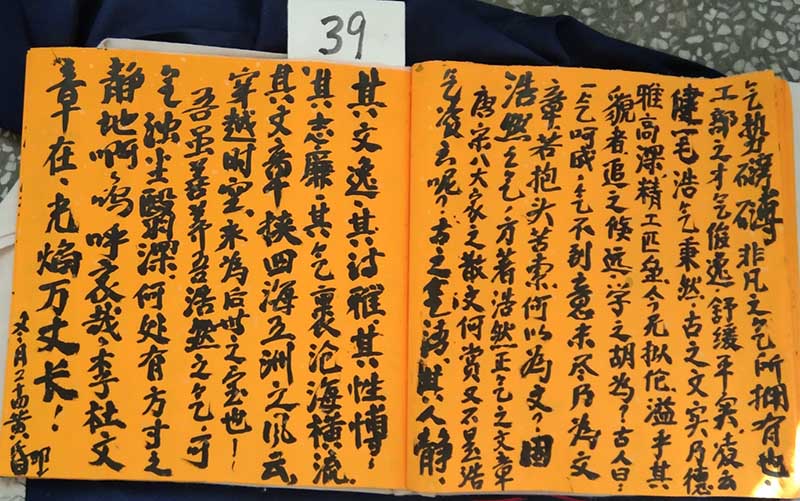 39
气势磅礴非凡之气所拥有也、
工部之才气俊逸舒缓平实凌云
健笔浩气秉然、古之文实乃德
雅高深、精工匹今无拟佗溢乎其
貌者追之候远学之胡为？古人曰：
一气呵成、气不到意未尽乃为文
章若抱头苦索何以为文？固
浩然之气方著浩然正气之文章
唐宋八大家之散文何赏又不是浩
气凌云呢？古之其人静、
其文逸、其诗雅其性博、
其志廉、其气裹沧海横流
其文章挟四海五洲之风云、
穿越时空、永为后世之宝也！
吾虽善养吾浩然之气、可
气浊尘翳深何处有方寸之
静地啊、呜呼哀哉、李杜文
章在、光焰万丈长！
月黄昏